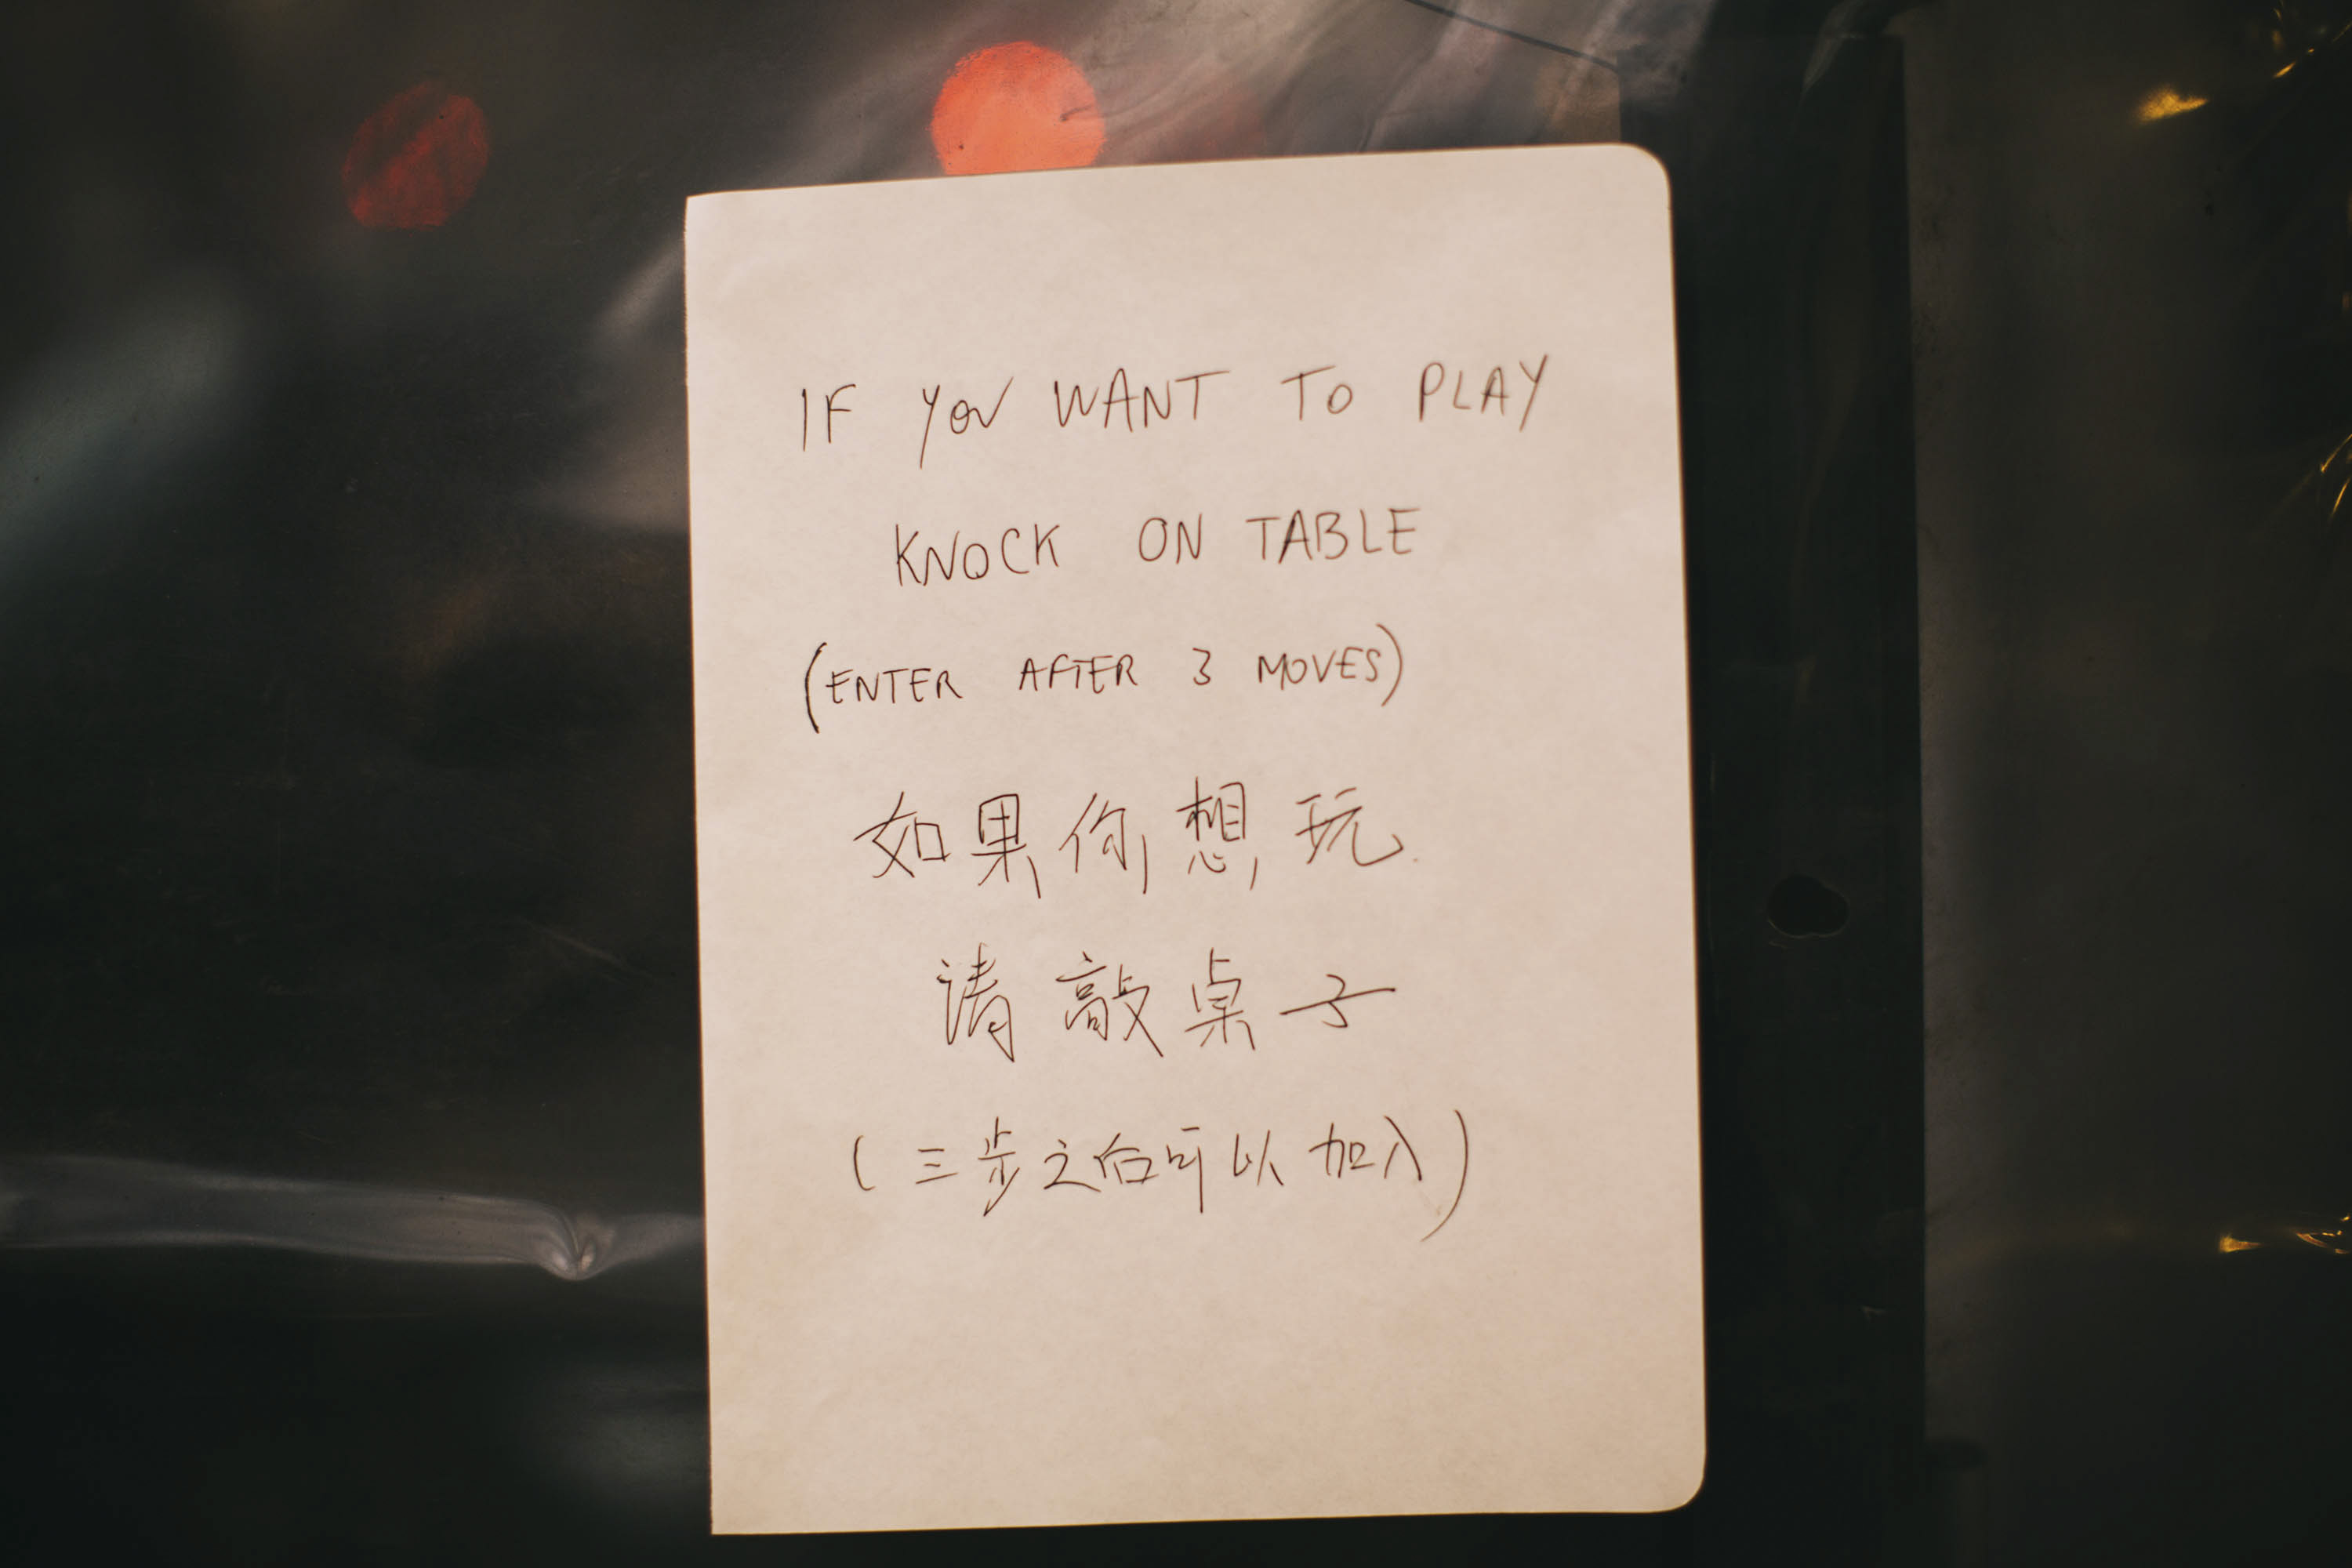 IF YOU WANT TO PLAY
KNOCK ON TABLE
(ENTER AFTER 3 MOVES)
如果你想玩
请敲桌子
(三步之后可以加入)